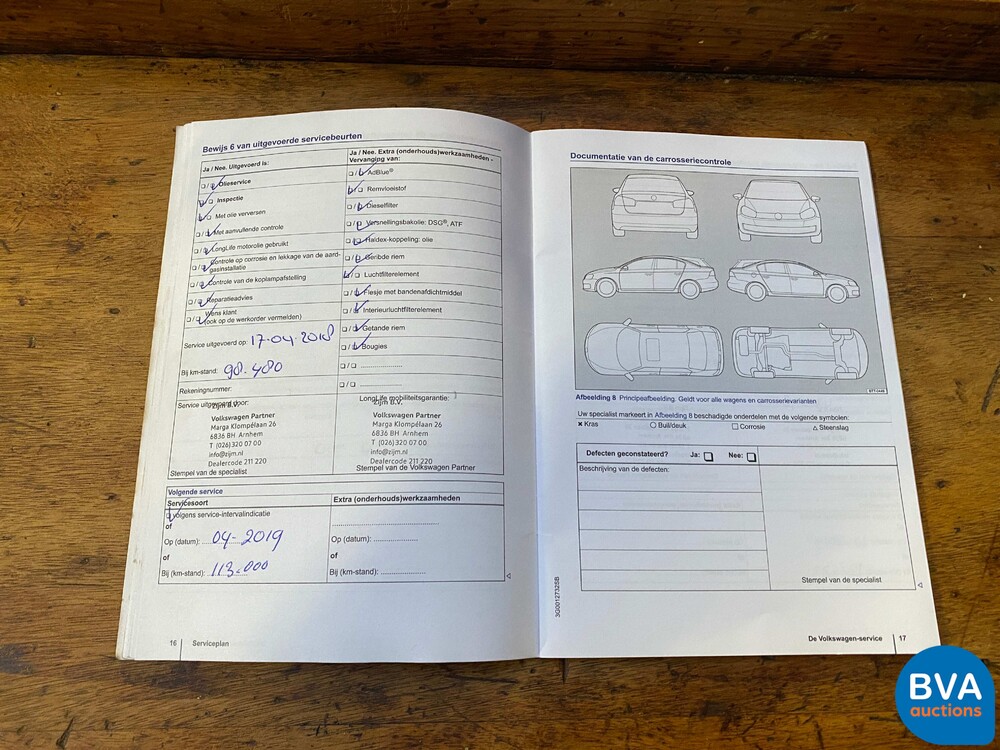 Bewijs 6 van uitgevoerde servicebeurten
Ja / Nee. Uitgevoerd is:
Olieservice
Inspectie
Met olie verversen
Met aanvullende controle
LongLife motorolie gebruikt
Controle op corrosie en lekkage van de aard-
gasinstallatie
Controle van de koplampafstelling
Reparatieadvies
Wens klant
(ook op de werkorder vermelden)
Service uitgevoerd op: 17-04-2018
Bij km-stand: 98.480
Rekeningnummer:
Service uitgevoerd door:
Zijm B.V.
Volkswagen Partner
Marga Klompélaan 26
6836 BH Arnhem
T (026) 320 07 00
info@zijm.nl
Dealercode 211 220
Stempel van de specialist
Ja / Nee. Extra (onderhouds)werkzaamheden -
Vervanging van:
AdBlue®
Remvloeistof
Dieselfilter
Versnellingsbakolie: DSG®, ATF
Haldex-koppeling: olie
Geribde riem
Luchtfilterelement
Flesje met bandenafdichtmiddel
Interieurluchtfilterelement
Getande riem
Bougies
LongLife mobiliteitsgarantie:
Zijm B.V.
Volkswagen Partner
Marga Klompélaan 26
6836 BH Arnhem
T (026) 320 07 00
info@zijm.nl
Dealercode 211 220
Stempel van de Volkswagen Partner
Volgende service
Servicesoort
volgens service-intervalindicatie
of
Op (datum): 04-2019
of
Bij (km-stand): 113.000
Extra (onderhouds)werkzaamheden
Op (datum):
of
Bij (km-stand):
16 Serviceplan
Documentatie van de carrosseriecontrole
Afbeelding 8 Principeafbeelding. Geldt voor alle wagens en carrosserievarianten
Uw specialist markeert in Afbeelding 8 beschadigde onderdelen met de volgende symbolen:
× Kras ○ Buil/deuk □ Corrosie △ Steenslag
Defecten geconstateerd? Ja: Nee:
Beschrijving van de defecten:
Stempel van de specialist
3G0012732SB
De Volkswagen-service 17
BVA
auctions